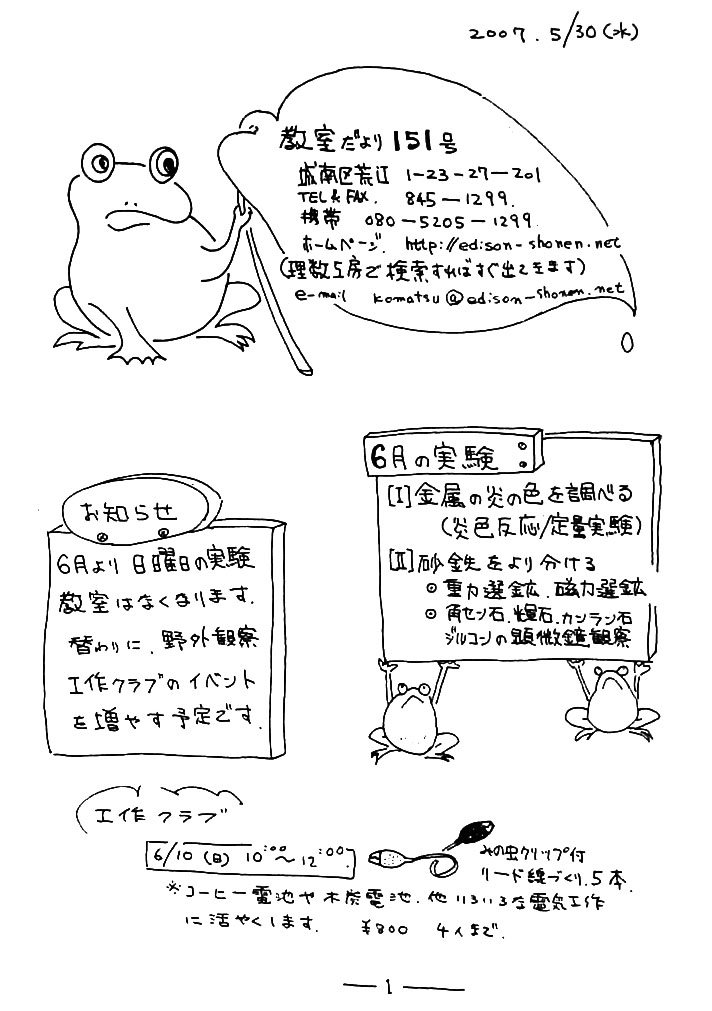 2007.5/30(水)
教室だより 151号
城南区荒江 1-23-27-201
TEL & FAX. 845-1299.
携帯 080-5205-1299
ホームページ. http://edison-shonen.net
(理数工房で検索すればすぐ出てきます)
e-mail komatsu@edison-shonen.net
6月の実験
[I]金属の炎の色を調べる
(炎色反応/定量実験)
[II]砂鉄をより分ける
◎重力選鉱.磁力選鉱
◎角セン石.輝石.カンラン石
ジルコンの顕微鏡観察
お知らせ
6月より日曜日の実験
教室はなくなります.
替わりに.野外観察
工作クラブのイベント
を増やす予定です.
工作クラブ
6/10(日) 10:00~12:00
みの虫クリップ付
リード線づくり.5本.
※コーヒー電池や木炭電池.他いろいろな電気工作
に活やくします. ¥800 4人まで.
— 1 —